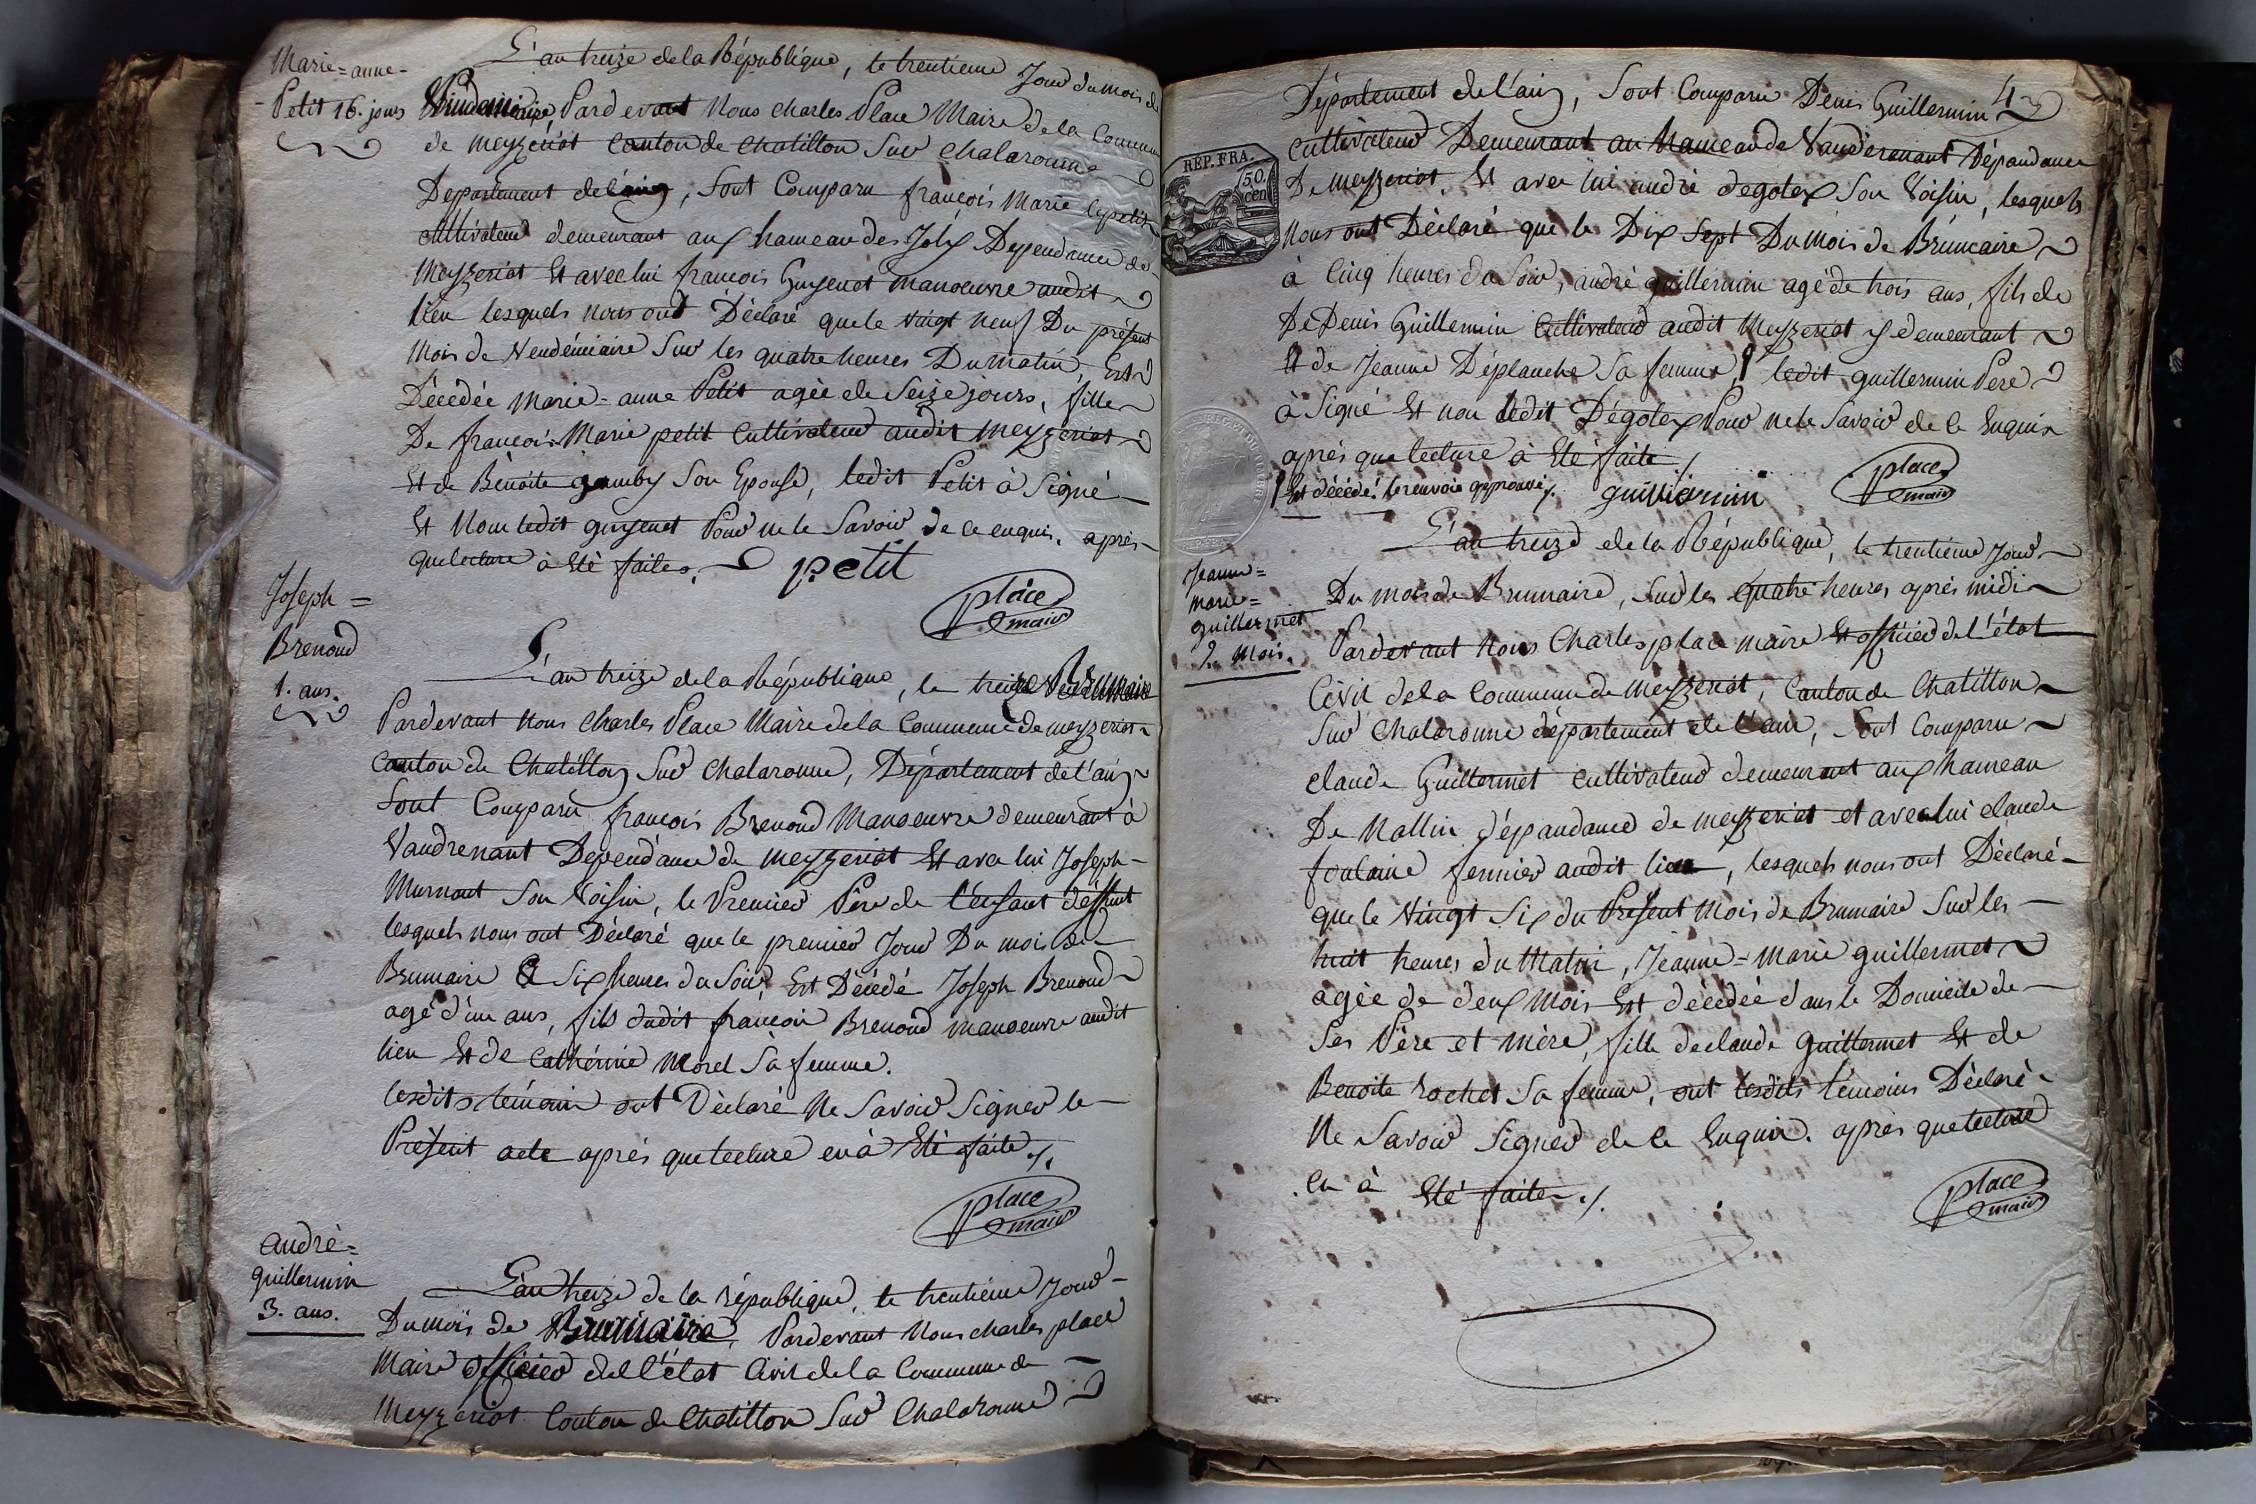 Marie=anne-
Petit 16. jours
L'an treize de la République, le trentieme Jour du mois de
Vendémiaire, Pardevant Nous charles Place Maire de la Commune
de meyzériat Canton de Chatillon Sur chalaronne
Departement de l'ain, Sont Comparu françois Marie Lepetit
cultivateur demeurant aux hameau des Joly Dependance de
Meyzeriat Et avec lui françois Guyenet manoeuvre audit
lieu lesquels nous ont Déclaré que le vingt neuf Du présent
Mois de Vendémiaire Sur les quatre heures Du matin, Est
Décédée Marie-anne Petit agée de Seize jours, fille
De françois Marie petit Cultivateur audit Meyzeriat
Et de Benoite gamby Son Epouse, ledit Petit à Signé
Et Non ledit guyenet Pour ne le Savoir de ce enquis, après
que lecture à Eté faite.
petit
place
maire
Joseph=
Brenoud
1. ans.
L'an treize de la République, le treize Brumaire
Pardevant Nous Charles Place Maire de la Commune de meyzeriat
Canton de Chatillon Sur Chalaronne, Département de l'ain
Sont Comparu françois Brenoud Manoeuvre demeurant à
Vaudrenant Dependance de Meyzeriat Et avec lui Joseph-
Murnant Son Voisin, le Premier Père de l'enfant déffunt
lesquels nous ont Déclaré que le premier Jour Du mois de
Brumaire à Six heures du Soir, Est Décédé Joseph Brenoud
agé d'un ans, fils dudit françois Brenoud manoeuvre audit
lieu Et de Cathérine Morel Sa femme.
lesdits témoin ont Déclaré Ne Savoir Signer le
Présent acte après que lecture en à Eté faite ./.
place
maire
andré=
guillermin
3. ans.
L'an treize de la république, le trentiéme Jour
Du mois de Brumaire, Pardevant Nous charles place
Maire officier del l'état Civil de la Commune de
Meyzeriat Canton de Chatillon Sur Chalaronne
Département de l'ain, Sont Comparu Denis Guillermin
4
cultivateur Demeurant au hameau de Vaudrenant Dépandance
De meyzeriat, Et avec lui andré degolex Son Voisin, lesquels
Nous ont Déclaré que le Dix Sept Du mois de Brumaire
à Cinq heures du Soir, andré guillermin agé de trois ans, fils de
De Denis Guillermin Cultivateur audit Meyzeriat y demeurant
Et de Jeanne Déplanche Sa femme, ledit guillermin Pere
à Signé Et non ledit Dégolex Pour ne le Savoir de le Enquis
après que lecture à Eté faite ./.
Est décédé. le renvoie approuvé ./.
guillermin
place
maire
REP. FRA.
50.
cen
Jeanne=
marie=
guillermet
2. mois.
L'an treize de la République, le trentiéme Jour
Du mois de Brumaire, Sur les quatre heures après midi
Pardevant Nous Charles place maire Et officier de l'état
Civil de la Commune de Meyzeriat, Canton de Chatillon
Sur Chalaronne département de l'ain, Sont Comparu
claude Guillermet cultivateur demeurant aux hameau
De Mallin dépandance de meyzeriat et avec lui claude
fontaine fermier audit lieu, lesquels nous ont Déclaré-
que le Vingt Six du Présent Mois de Brumaire Sur les
huit heures du Matin, Jeanne=Marie guillermet
agée de deux Mois Est décédée dans le Domicile de
Ses Père et mère, fille de claude guillermet Et de
Benoite rochet Sa femme, ont lesdits témoins Déclaré
Ne Savoir Signer de le Enquis. après que lecture
en à Eté faite ./.
place
maire